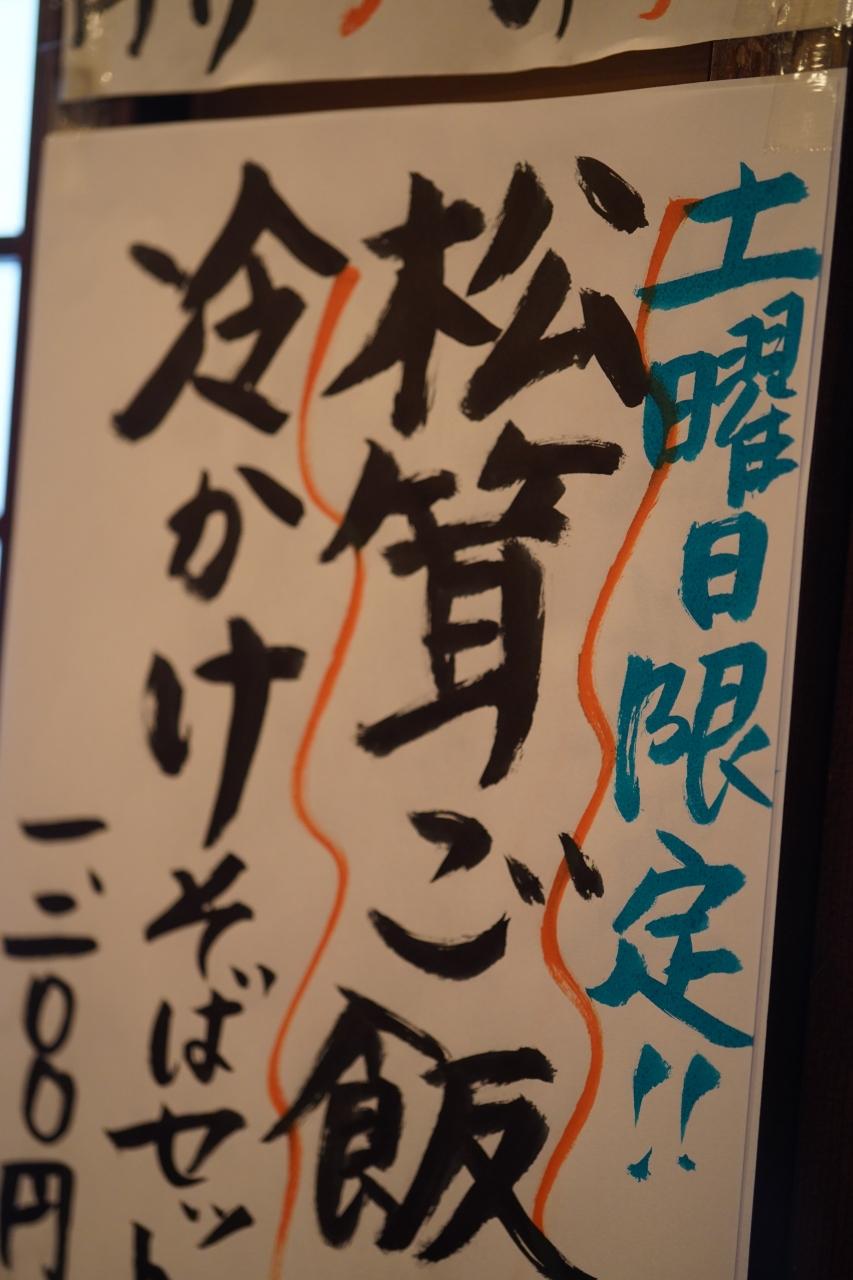 土曜日限定!!
松茸ご飯
冷かけそばセット
一、二00円